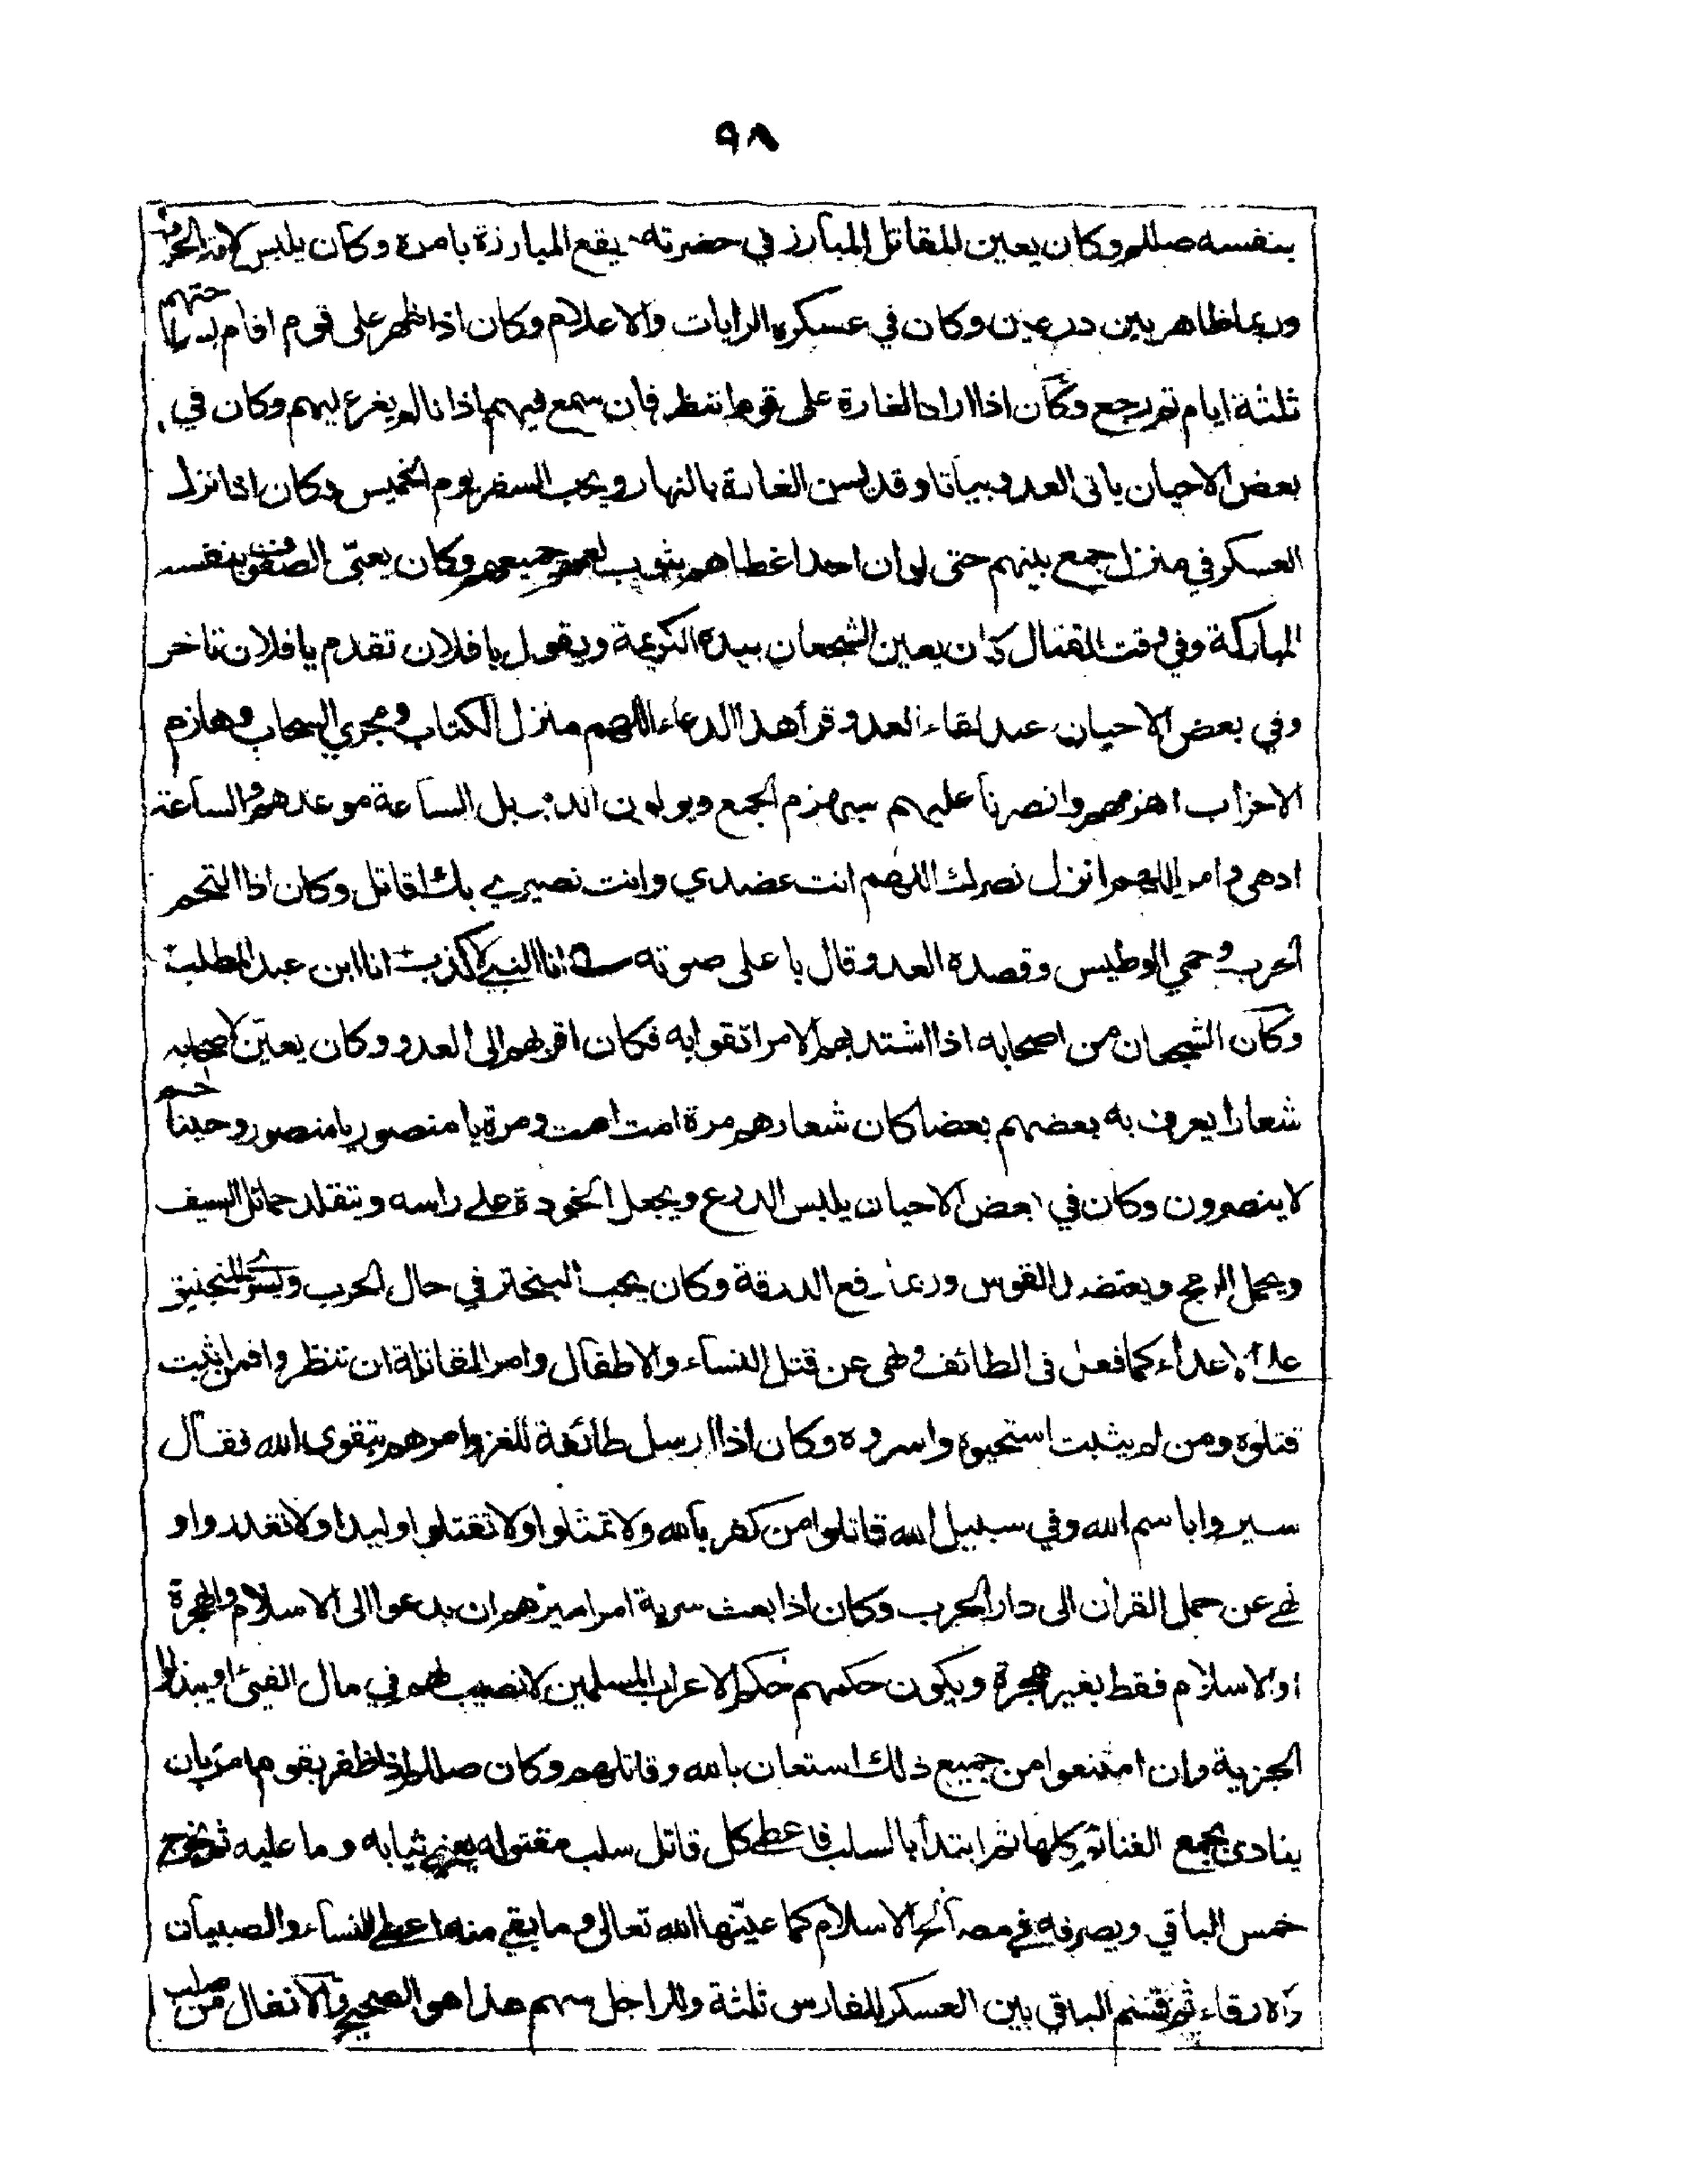 ٩٨
بنفسه صللم وكان يعين المقاتل المبارز في حضرته يقع المبارزة بامره وكان يلبس لامة الحرب
وربما ظاهر بين درعين وكان في عسكره الرايات والاعلام وكان اذا ظهر على قوم اقام بساحتهم
ثلثة ايام ثم رجع وكان اذا اراد الغارة على قوم انتظر فان سمع فيهم اذانا لم يغر عليهم وكان في
بعض الاحيان ياتي العدو بياتا وقد يسن الغارة بالنهار ويحب السفر يوم الخميس وكان اذا نزل
العسكر في منزل جمع بينهم حتى لو ان احدا غطاهم بثوب لعمهم جميعهم وكان يعبّى الصفوف بنفسه
المباركة وفي وقت القتال كان يعين الشجعان بيده الكريمة ويقول يا فلان تقدم يا فلان تاخر
وفي بعض الاحيان عند لقاء العدو قرأ هذا الدعاء اللهم منزل الكتاب ومجري السحاب وهازم
الاحزاب اهزمهم وانصرنا عليهم سيهزم الجمع ويولون الدبر بل الساعة موعدهم والساعة
ادهى وامر اللهم انزل نصرك اللهم انت عضدي وانت نصيري بك اقاتل وكان اذا التحم
الحرب وحمي الوطيس وقصده العدو قال باعلى صوته انا النبي لا كذب انا ابن عبد المطلب
وكان الشجعان من اصحابه اذا اشتد بهم الامر اتقوا به فكان اقربهم الى العدو وكان يعيّن لاصحابه
شعارا يعرف به بعضهم بعضا كان شعارهم مرة امت امت ومرة يا منصور يا منصور وحينا حم
لا ينصرون وكان في بعض الاحيان يلبس الدرع ويجعل الخودة على راسه ويتقلد حمائل السيف
ويحمل الرمح ويعتضد القوس وربما رفع الدرقة وكان يحب التبختر في حال الحرب المنجنيق
على الاعداء كما فعل في الطائف ونهى عن قتل النساء والاطفال وامر المقاتلة ان تنظروا فمن ثبت
قتلوه ومن لم يثبت استحيوه واسروه وكان اذا ارسل طائفة للغزو امرهم بتقوى الله فقال
سيروا باسم الله وفي سبيل الله قاتلوا من كفر بالله ولا تمثلوا ولا تقتلوا وليدا ولا تغدروا و
نهى عن حمل القران الى دار الحرب وكان اذا بعث سرية امر اميرهم ان يدعوا الى الاسلام والهجرة
او الاسلام فقط بغير هجرة ويكون حكمهم حكم الاعراب المسلمين لا نصيب لهم في مال الفئ او يبذلوا
الجزية وان امتنعوا من جميع ذلك استعان بالله وقاتلهم وكان صللم اذا ظفر بقوم امر بان
ينادى بجمع الغنائم كلها ثم ابتدأ بالسلب فاعطى كل قاتل سلب مقتوله يعني ثيابه وما عليه ثم يخرج
خمس الباقي ويصرفه في مصالح الاسلام كما عيّنها الله تعالى وما بقي منه اعطى للنساء والصبيان
والارقاء ثم قسم الباقي بين العسكر للفارس ثلثة وللراجل سهم هذا هو الصحيح والانفال من صلب